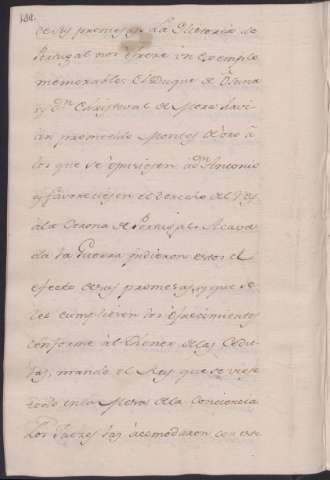 de sus promesas. La Historia de
Portugal nos ofrece un exemplo
memorable. El Duque de Osuna
y Dn. Christoval de Mora havi
an prometido Montes de oro â
los que se opusiesen â Dn. Antonio
y favoreciesen el derecho del Rey
â la Corona de Portugal. Acava
da la Guerra pidieron estos el
efecto de sus promesas, y que se
les cumpliesen los ofrecimientos
conforme âl thenor de las Cedu
las, mandó el Rey que se viese
todo en la Mesa de la Conciencia
Los Padres las acomodaron con este